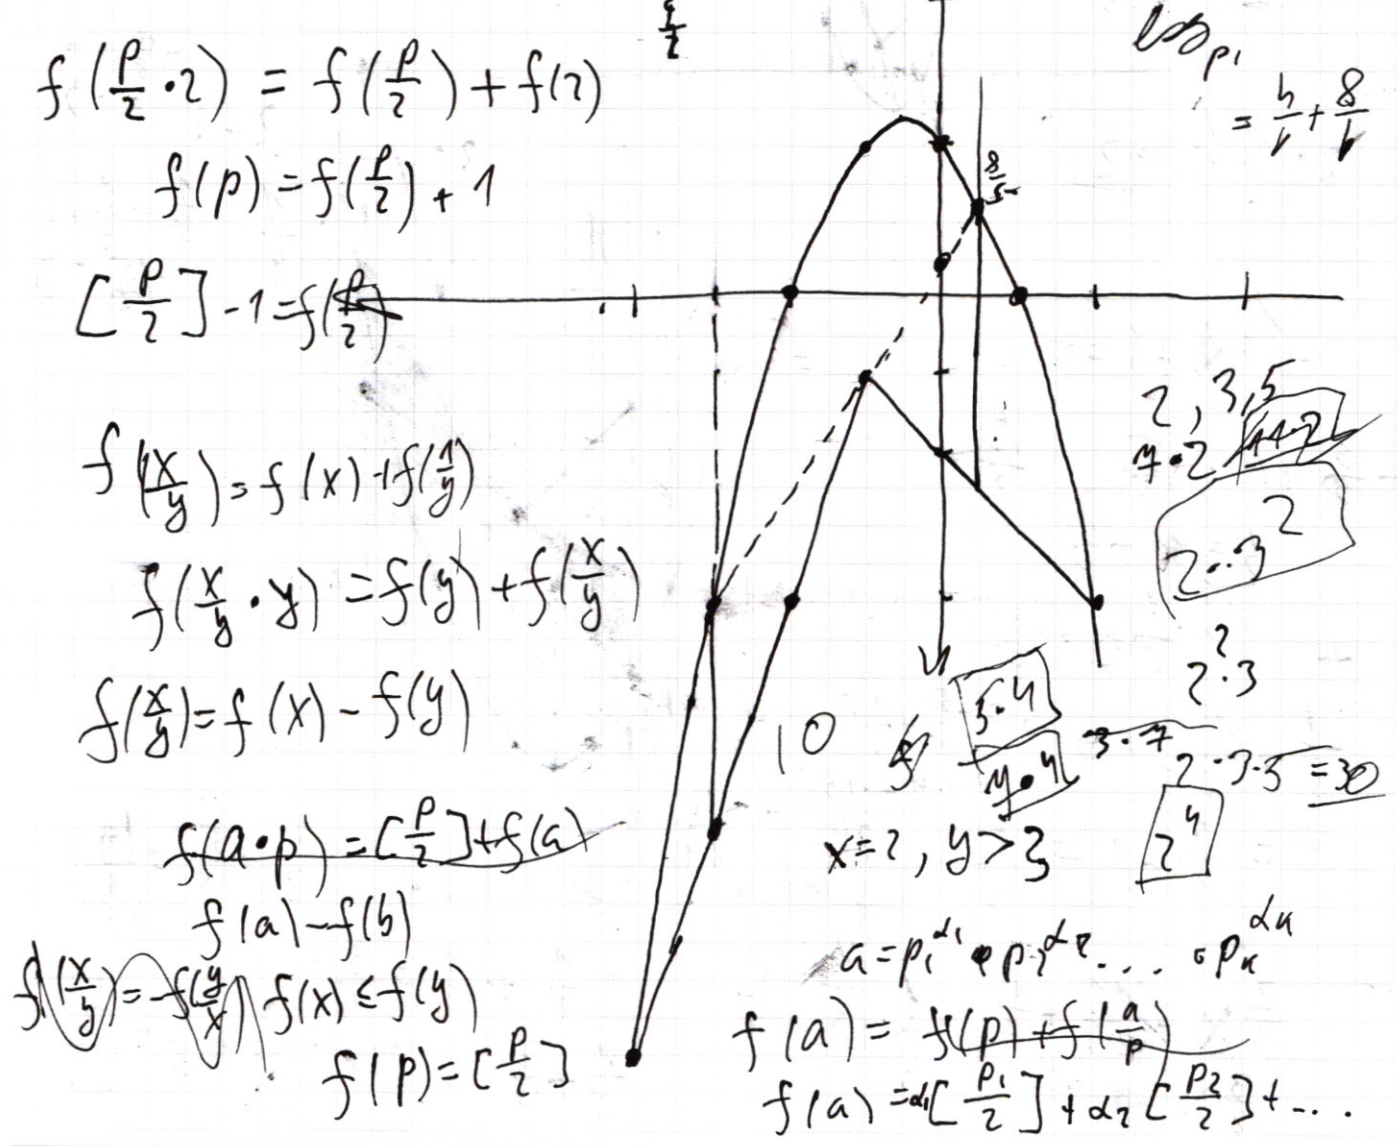 f(p/2 · 2) = f(p/2) + f(2)
f(p) = f(p/2) + 1
[p/2] - 1 = f(p/2)
f(x/y) = f(x) + f(1/y)
f(x/y · y) = f(y) + f(x/y)
f(x/y) = f(x) - f(y)
f(a·p) = [p/2] + f(a)
f(a) - f(b)
f(x/y) = -f(y/x) f(x) ≤ f(y)
f(p) = [p/2]
2, 3, 5
7·2 11·2
2·3²
2²·3
5·4
7·4
3·7
2·3·5 = 30
10
2⁴
x=2, y>3
a = p₁^α₁ · p₂^α₂ · ... · pₖ^αₖ
f(a) = f(p) + f(a/p)
f(a) = α₁[p₁/2] + α₂[p₂/2] + ...